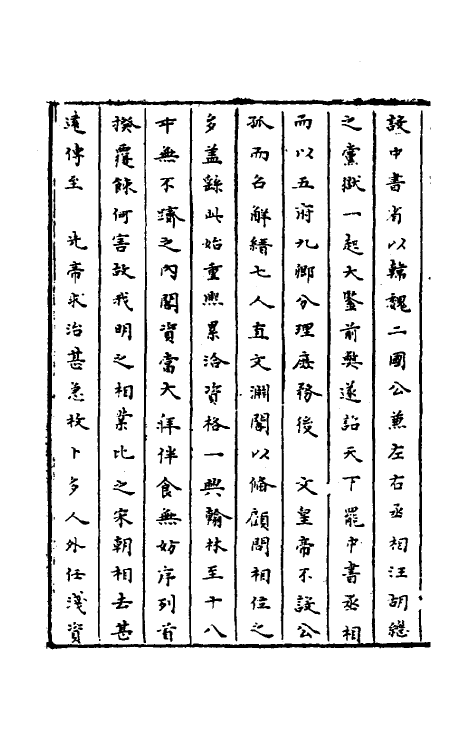 設中書省以韓魏二國公兼左右丞相汪胡繼
之黨獄一起大鑒前獘遂詔天下罷中書丞相
而以五府九卿分理庶務後 文皇帝不設公
孤而名解縉七人直文淵閣以備顧問相位之
多蓋繇此始重熈累洽資格一與翰林至十八
中無不濟之內閣資當大拜伴食無妨序列首
揆覆餗何害故我明之相業比之宋朝相去甚
遠傳至 先帝求治甚急枚卜多人外任淺資